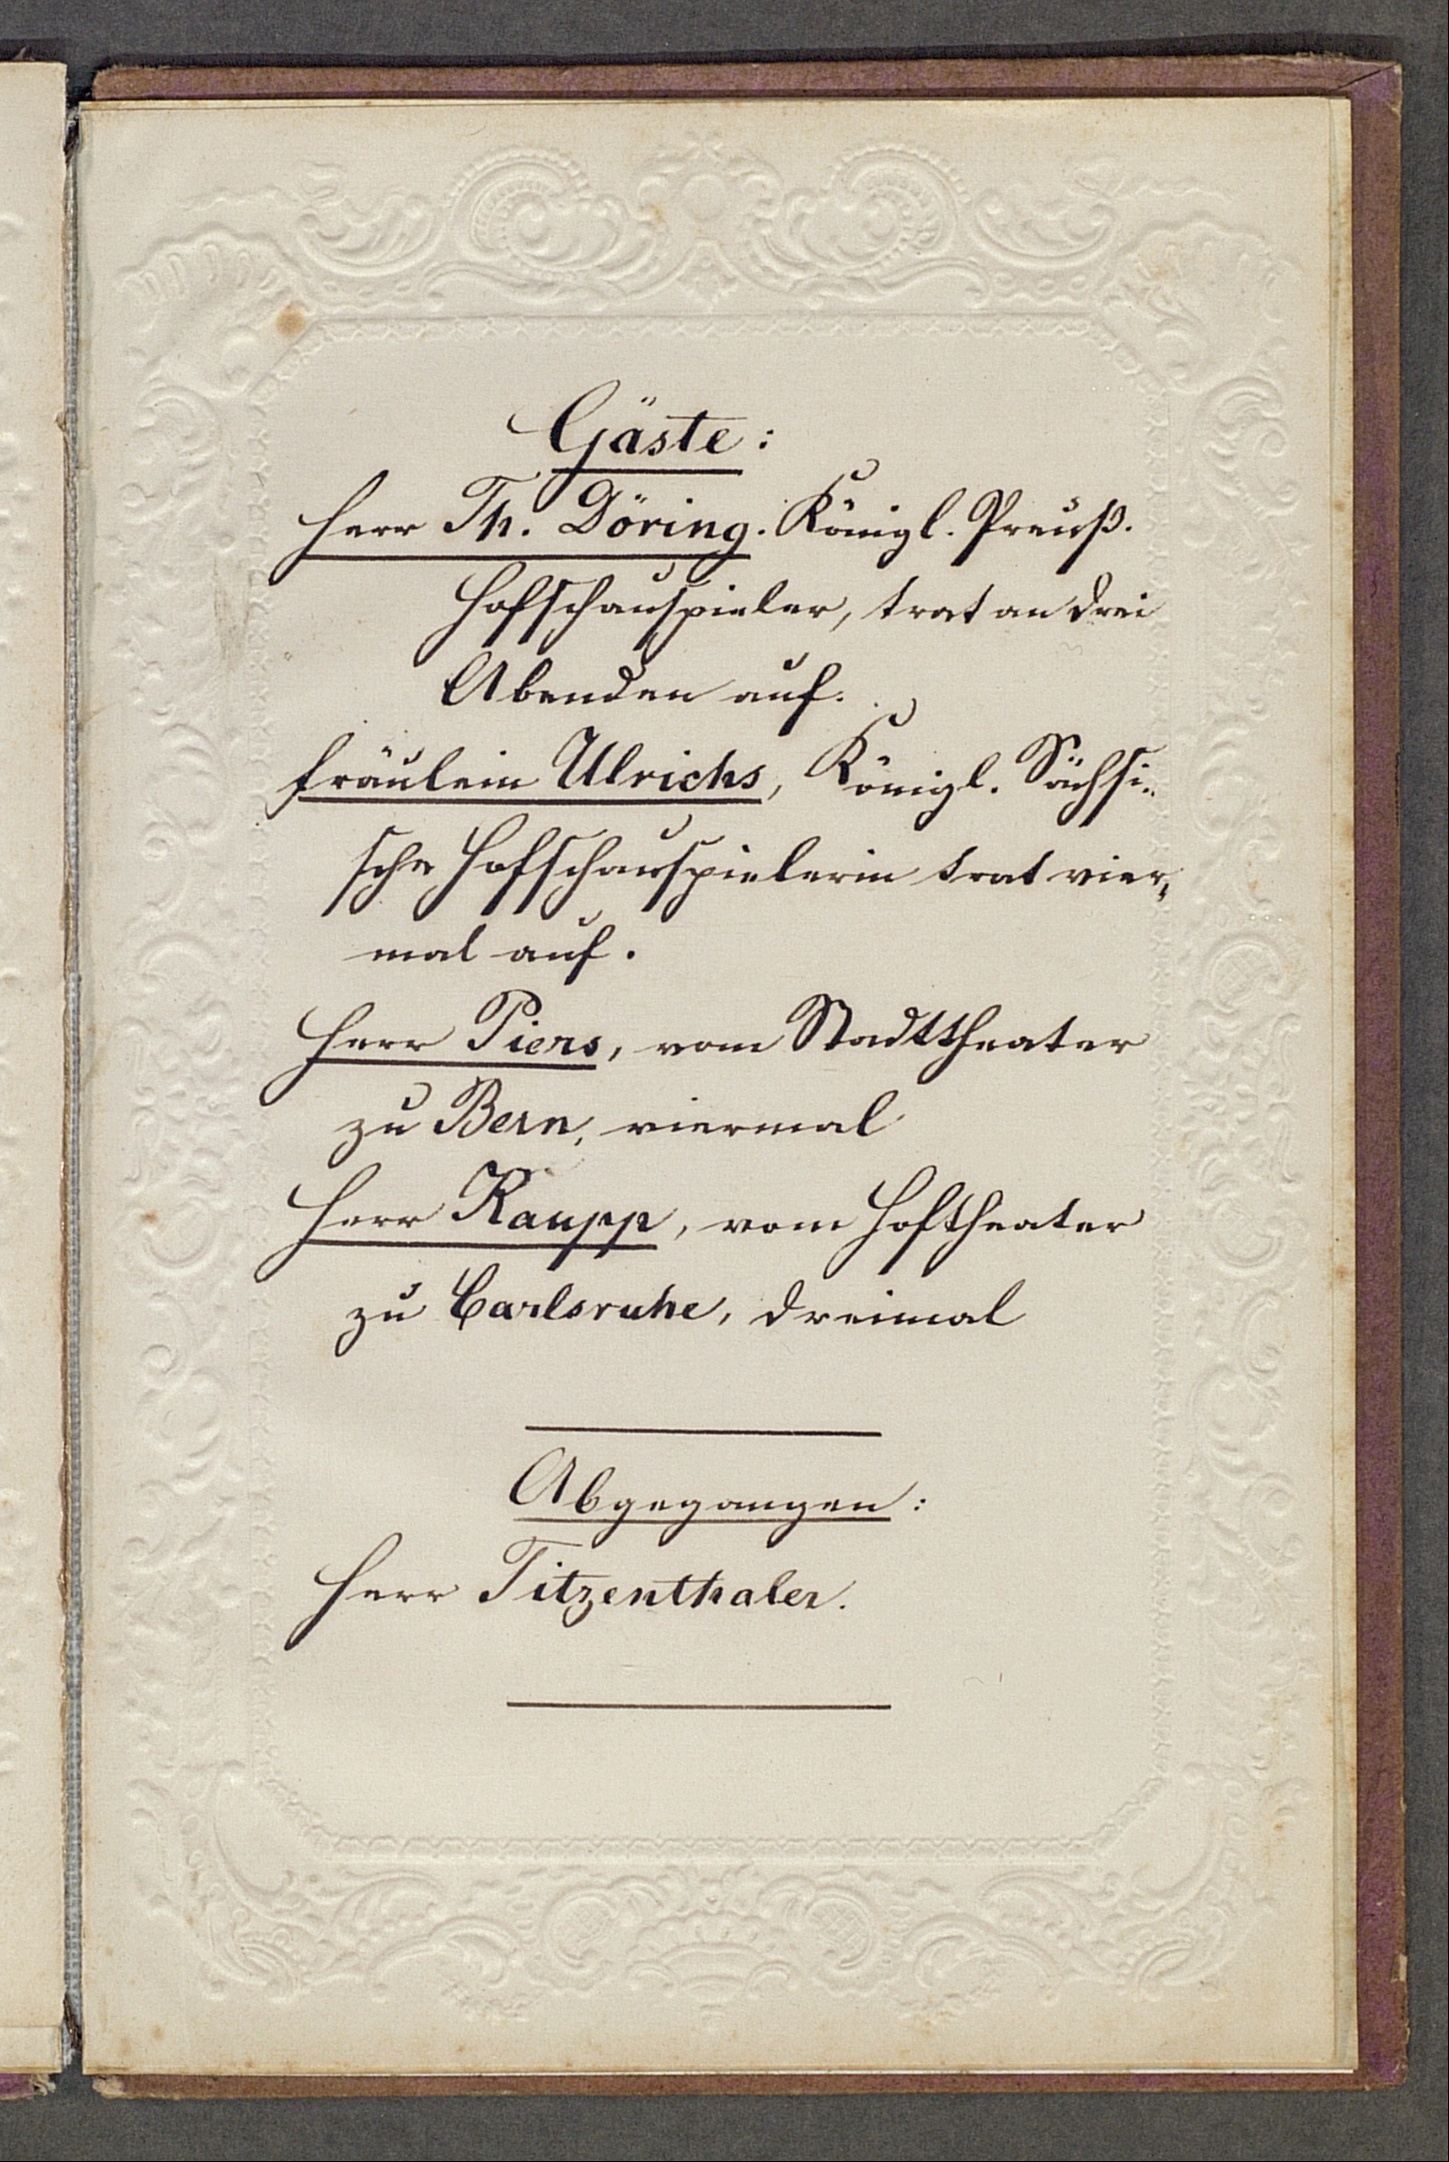 Gäste:
Herr Th. Döring. Königl. Preuß.
Hofschauspieler, trat an drei
Abenden auf.
Fräulein Ulrichs, Königl. Sächsi-
sche Hofschauspielerin trat vier-
mal auf.
Herr Piers, vom Stadttheater
zu Bern, viermal
Herr Raupp, vom Hoftheater
zu Carlsruhe, dreimal
Abgegangen:
Herr Titzenthaler.